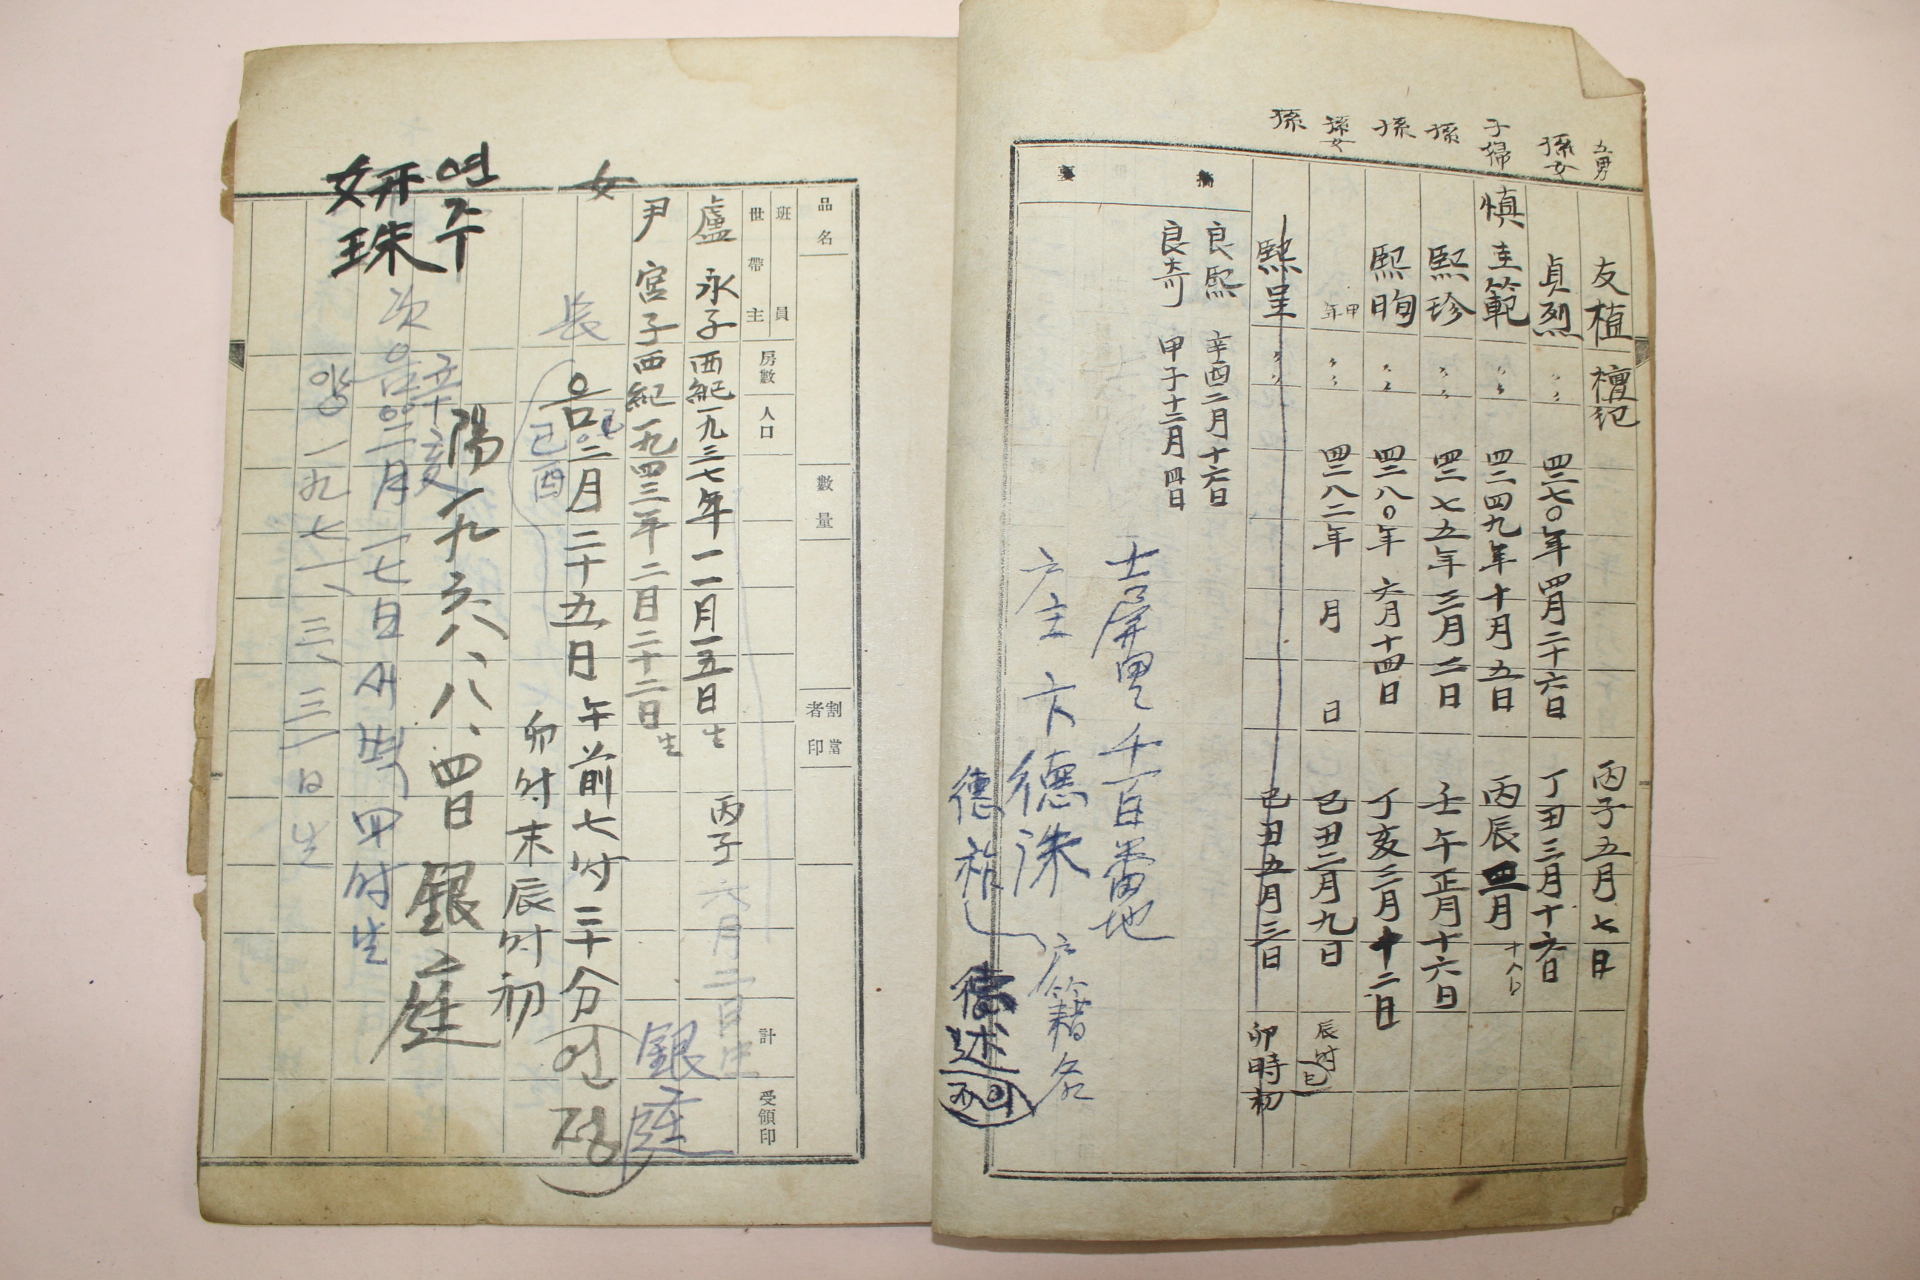 五男 友植 檀紀 丙子五月七日
孫女 貞烈 〃 四二七〇年四月二十六日 丁丑三月十六日
子婦 愼圭範 〃 四二四九年十月五日 丙辰四月十八日
孫 熙珍 〃 四二七五年三月二日 壬午正月十六日
孫 熙昫 〃 四二八〇年六月十四日 丁亥三月十二日
孫女 甲年 〃 四二八二年 月 日 己丑二月九日 辰時
孫 熙呈 〃 己丑五月三日 卯時初
摘要
良熙 辛酉二月十六日
良奇 甲子十二月四日
士屛里 千百番地
戶主 卞德洙 戶籍名
德祚
德述
品名
數量
割當者印
班員
世帶主
房數
人口
計
受領印
盧永子 西紀一九三七年一一月一五日生 丙子 六月二日生
尹宮子 西紀一九四三年二月二十二日生 銀庭
女 長 음 二月二十五日 午前七时三十分 은정
己酉 卯时末辰时初
陽一九六八、八、四日 銀庭
연주
姸珠
次 음 二月一七日 새벽 四时生
양 一九七一、三、三一日生